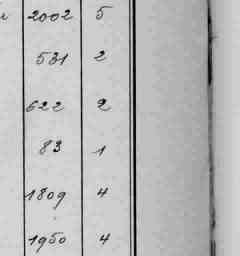 2002 5
531 2
622 2
83 1
1809 4
1950 4